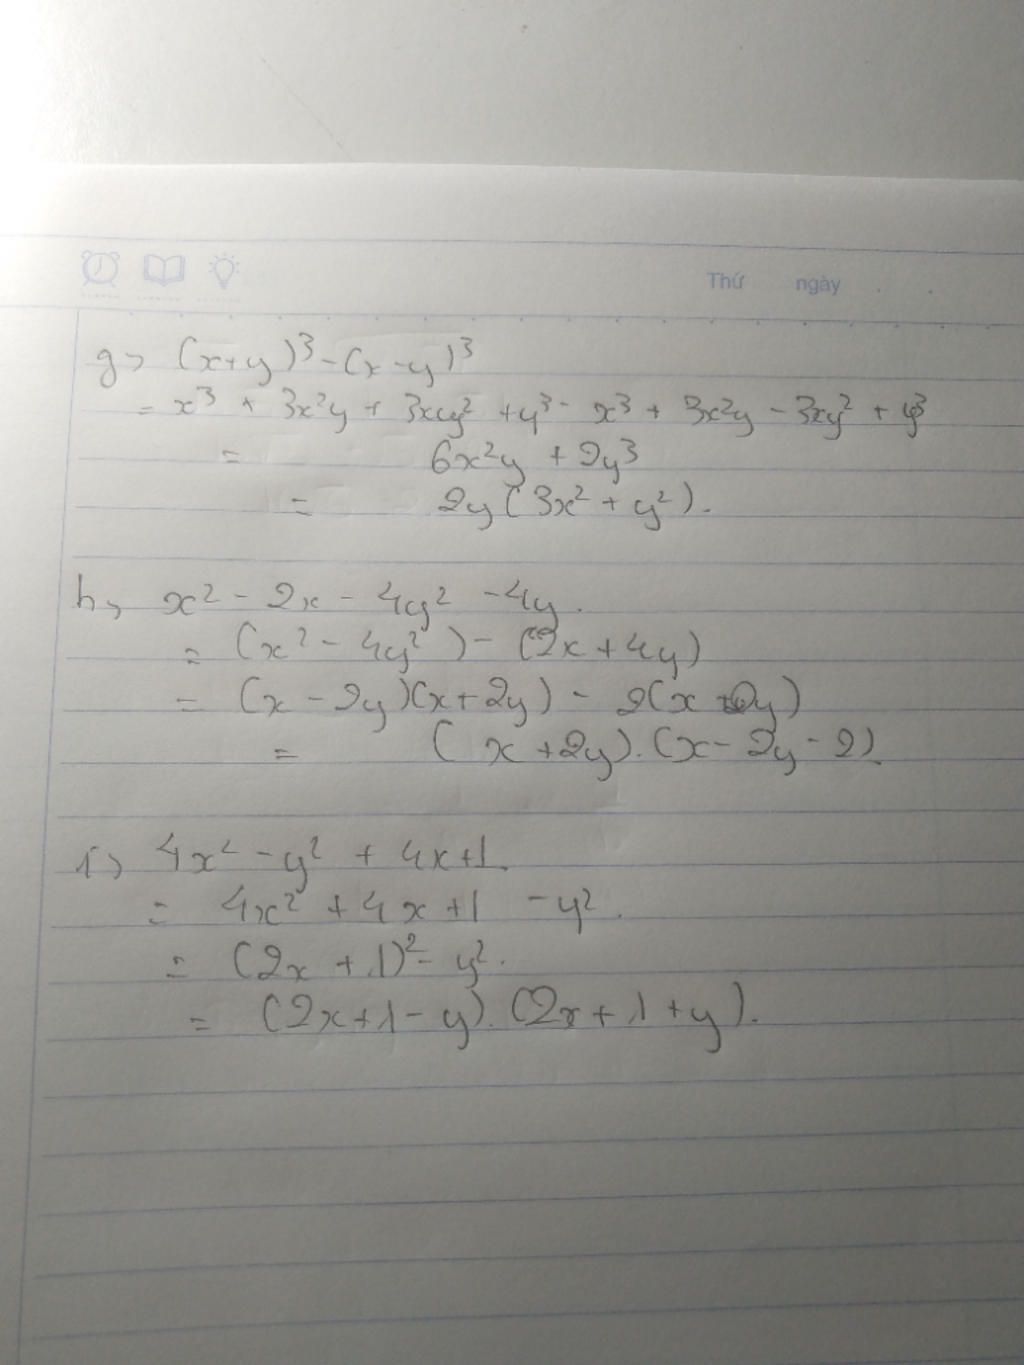 Thứ ngày
g> (x+y)³ - (x-y)³
= x³ + 3x²y + 3xy² + y³ - x³ + 3x²y - 3xy² + y³
= 6x²y + 2y³
= 2y(3x² + y²).
h> x² - 2x - 4y² - 4y.
= (x² - 4y²) - (2x+4y)
= (x - 2y)(x+2y) - 2(x+2y)
= (x+2y).(x-2y-2).
i> 4x² - y² + 4x+1.
= 4x² + 4x+1 - y².
= (2x + 1)² - y².
= (2x+1-y).(2x+1+y).